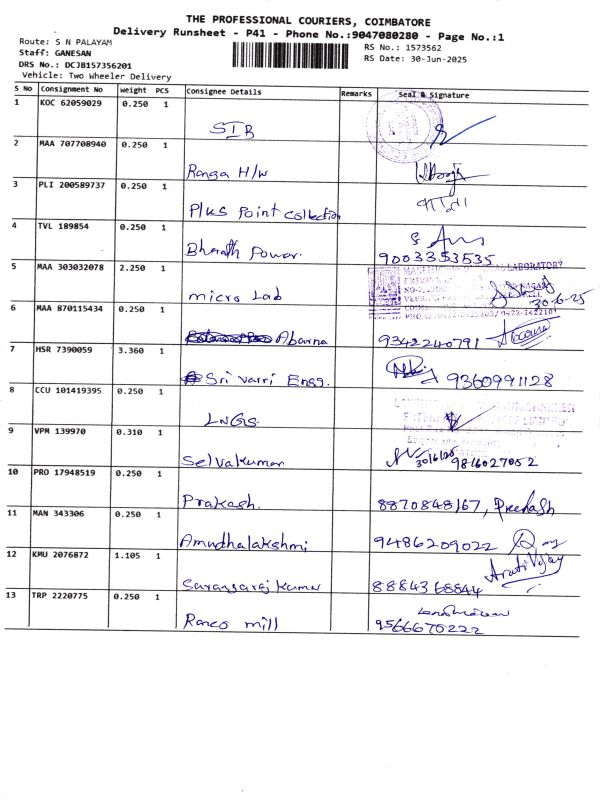 THE PROFESSIONAL COURIERS, COIMBATORE
Delivery Runsheet - P41 - Phone No.:9047080280 - Page No.:1
Route: S N PALAYAM
RS No.: 1573562
Staff: GANESAN
RS Date: 30-Jun-2025
DRS No.: DCJB157356201
Vehicle: Two Wheeler Delivery
S No Consignment No Weight PCS Consignee Details Remarks Seal & Signature
1 KOC 62059029 0.250 1
SIB
2 MAA 707708940 0.250 1
Ranga H/W
3 PLI 200589737 0.250 1
Plus Point Collection
4 TVL 189854 0.250 1
Bharath Power. 9003353535
5 MAA 303032078 2.250 1
LABORATORY
micro Lab 30-6-25
6 MAA 870115434 0.250 1
Abarna 9342240791
7 HSR 7390059 3.360 1
Sri Varri Engg. 9360991128
8 CCU 101419395 0.250 1
LNGS
9 VPM 139970 0.310 1
Selvakumar 30/6/25 9816027052
10 PRO 17948519 0.250 1
Prakash. 8870848167, Preekash
11 MAN 343306 0.250 1
Amudhalakshmi 9486209022
12 KMU 2076872 1.105 1
Arati Vijay
Sarangaraj Kumar 8884368844
13 TRP 2220775 0.250 1
Ranco mill 9566670222